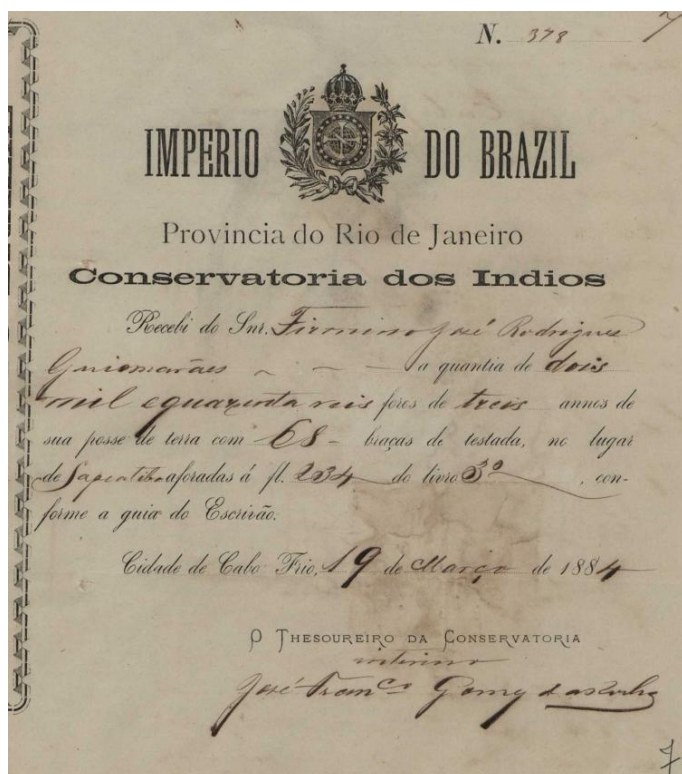 N. 378
7
IMPERIO DO BRAZIL
Provincia do Rio de Janeiro
Conservatoria dos Indios
Recebi do Snr. Firmino José Rodrigues
Guimarães ~ ~ ~ a quantia de dois
mil e quarenta reis foros de treis annos de
sua posse de terra com 68 - braças de testada, no lugar
de aforadas á fl. 234 do livro 3º, con-
forme a guia do Escrivão.
Cidade de Cabo Frio, 19 de Março de 1884
O THESOUREIRO DA CONSERVATORIA
interino
José Franco Gomes da
7